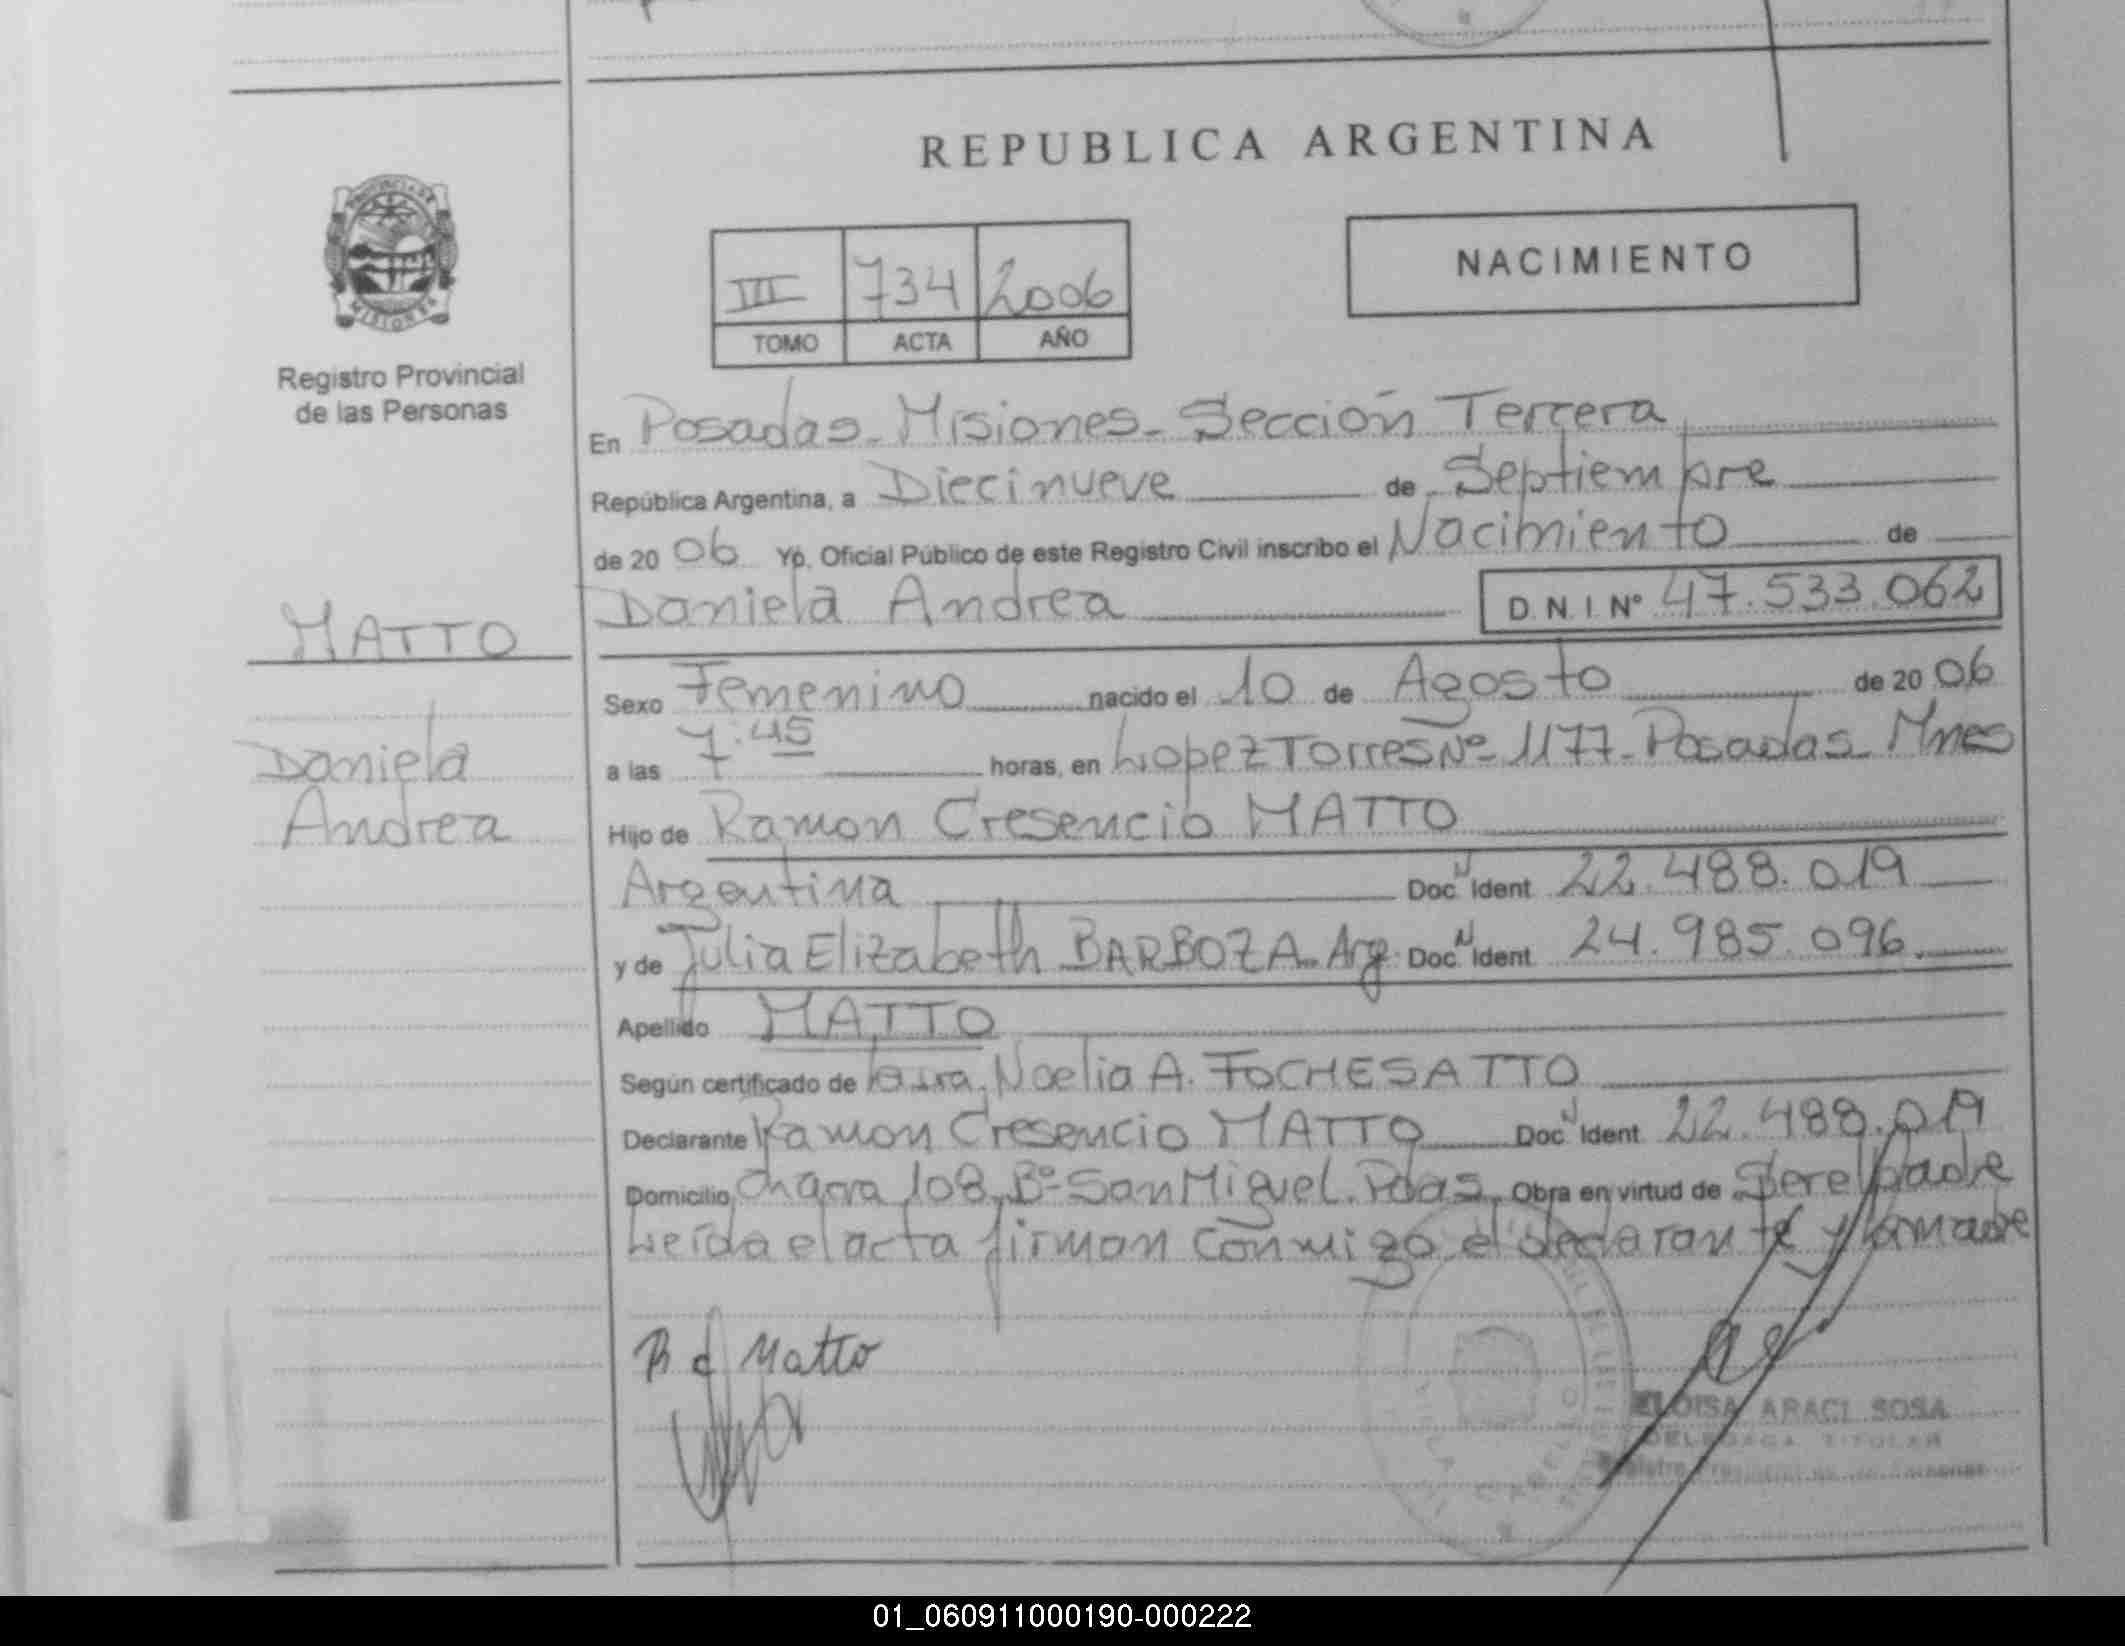 REPUBLICA ARGENTINA
PROVINCIA DE
MISIONES
Registro Provincial
de las Personas
NACIMIENTO
III 734 2006
TOMO ACTA AÑO
En Posadas - Misiones - Sección Tercera
República Argentina, a Diecinueve de Septiembre
de 20 06 Yo, Oficial Público de este Registro Civil inscribo el Nacimiento de
Daniela Andrea D.N.I Nº 47.533.062
MATTO
Daniela
Andrea
Sexo Femenino nacido el 10 de Agosto de 20 06
a las 7:45 horas, en Lopez Torres Nº 1177 - Posadas - Mnes
Hijo de Ramon Cresencio MATTO
Argentina Doc Ident 22.488.019
y de Julia Elizabeth BARBOZA - Arg. Doc Ident 24.985.096
Apellido MATTO
Según certificado de Noelia A. FOCHESATTO
Declarante Ramon Cresencio MATTO Doc Ident 22.488.019
Domicilio Chacra 108, Bº San Miguel. Pdas. Obra en virtud de Ser el padre
Leída el acta firman conmigo el declarante y la madre
R C Matto
ELOISA ARACI SOSA
DELEGADA TITULAR
01_060911000190-000222